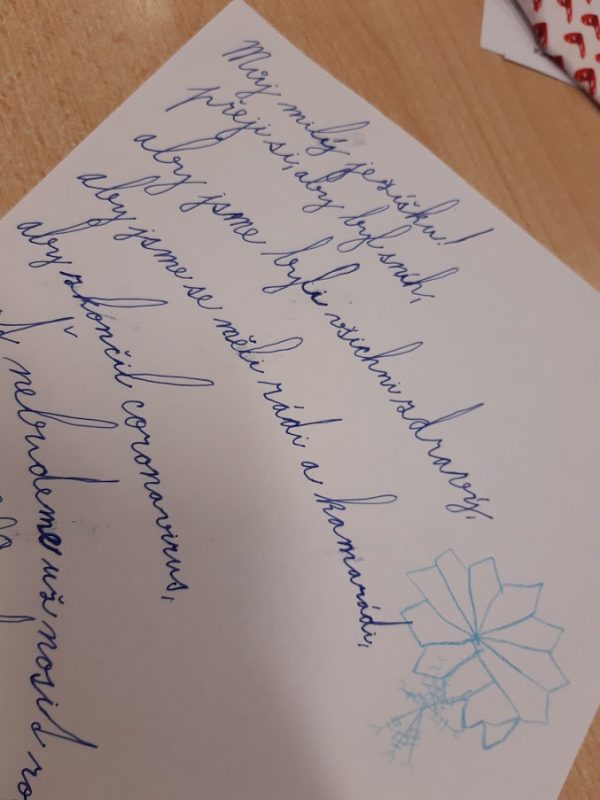 Můj milý ježíšku!
přeji si, aby byl sníh,
aby jsme byli všichni zdravý,
aby jsme se měli rádi a kamarádi,
aby zkončil coronavirus,
nebudeme už nosit